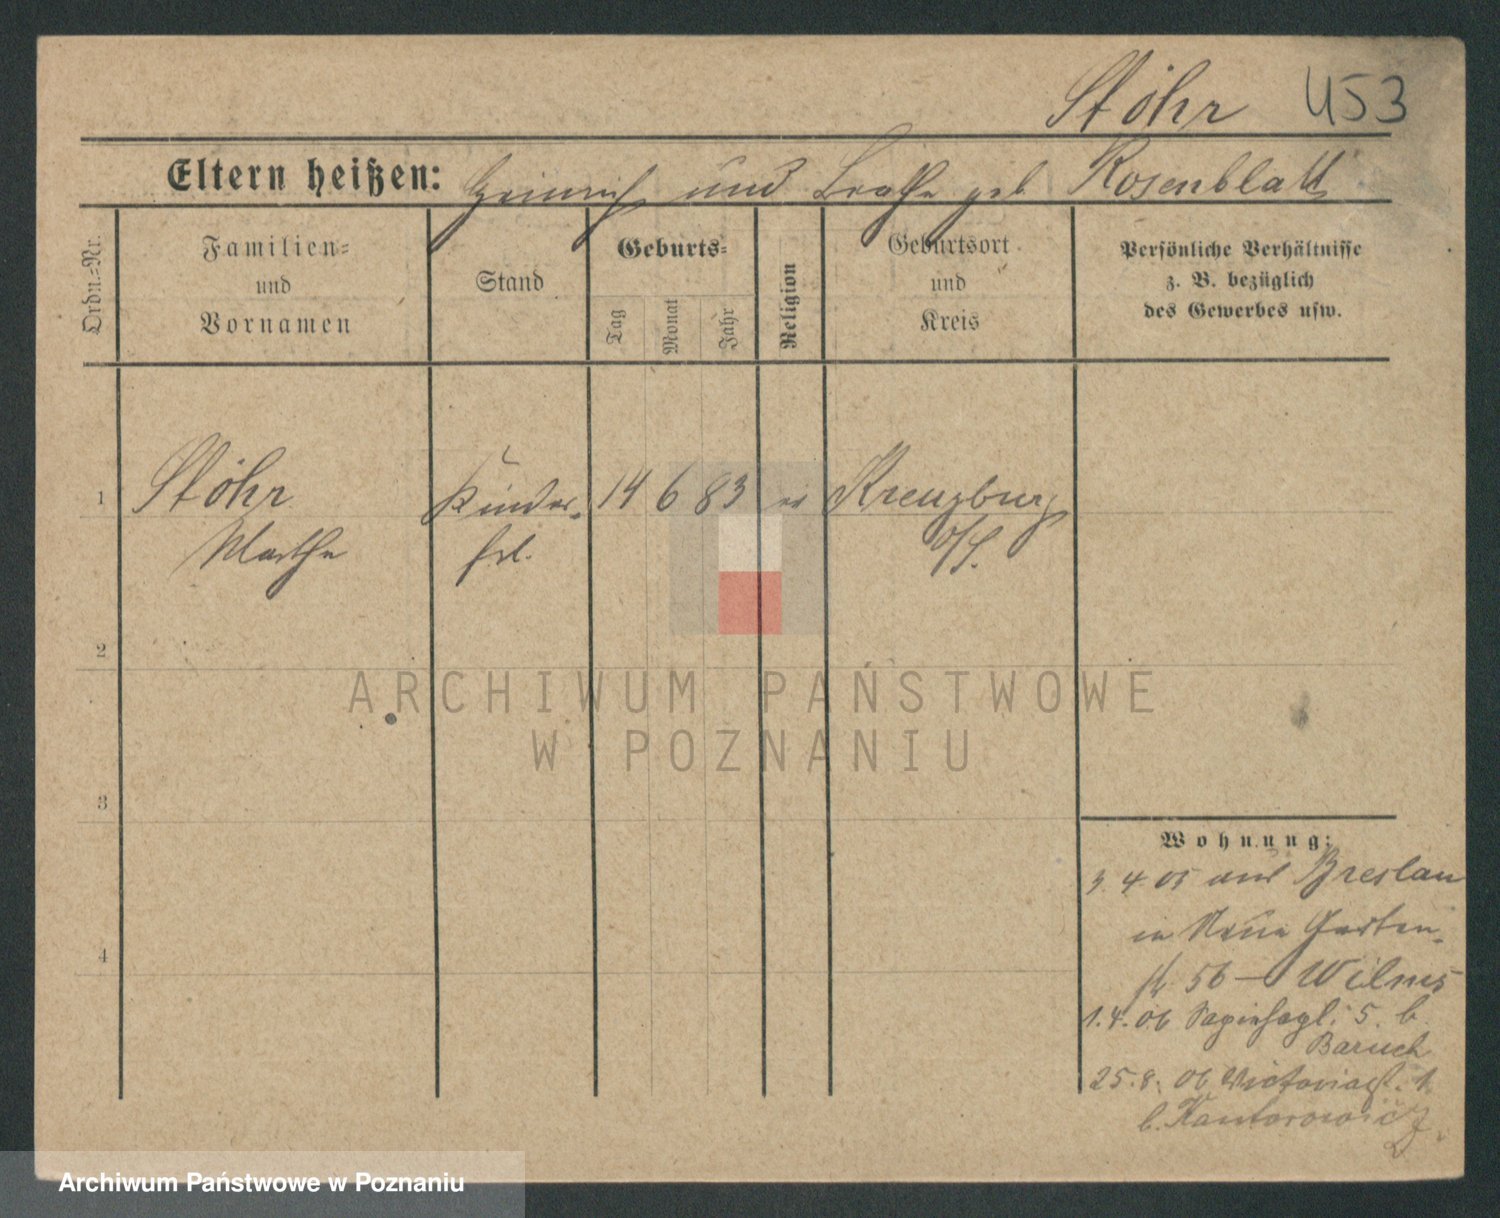 Stöhr U53
Eltern heißen: Heinrich und geb Rosenblatt
Ordn.=Nr.
Familien=
und
Vornamen
Stand
Geburts=
Tag
Monat
Jahr
Religion
Geburtsort
und
Kreis
Persönliche Verhältnisse
z. B. bezüglich
des Gewerbes usw.
1 Stöhr Kinder- 14 6 83 Kreuzburg
Marthe frl. o/S.
2
ARCHIWUM PAŃSTWOWE
W POZNANIU
3
4
Wohnung:
3. 4 05 aus Breslau
in Neue Garten-
str 56 – Wilms
1.4.06 5. b
Baruch
25.8.06 Victoriast. 1.
b. Kantorowicz.
Archiwum Państwowe w Poznaniu